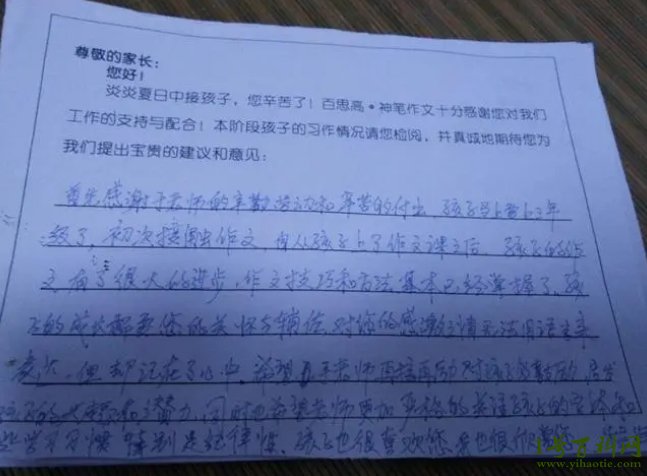 尊敬的家长：
您好！
炎炎夏日中接孩子，您辛苦了！百思高·神笔作文十分感谢您对我们
工作的支持与配合！本阶段孩子的习作情况请您检阅，并真诚地期待您为
我们提出宝贵的建议和意见：
首先感谢于老师的辛勤劳动和辛苦的付出，孩子马上上3年
级了，初次接触作文，自从孩子上了作文课之后，孩子的作
文有了很大的进步，作文技巧和方法基本已经掌握了，孩
子的成长都是您的关怀与 对您的感激之情无法用语言来
表达，但却记在了心中。希望于老师再接再励对孩子的鼓励，启发
孩子的 和潜力，同时也希望老师更加严格的关注孩子的
学习习惯 特别是纪律性。孩子也很喜欢您
1号百科网
www.yihaotie.com